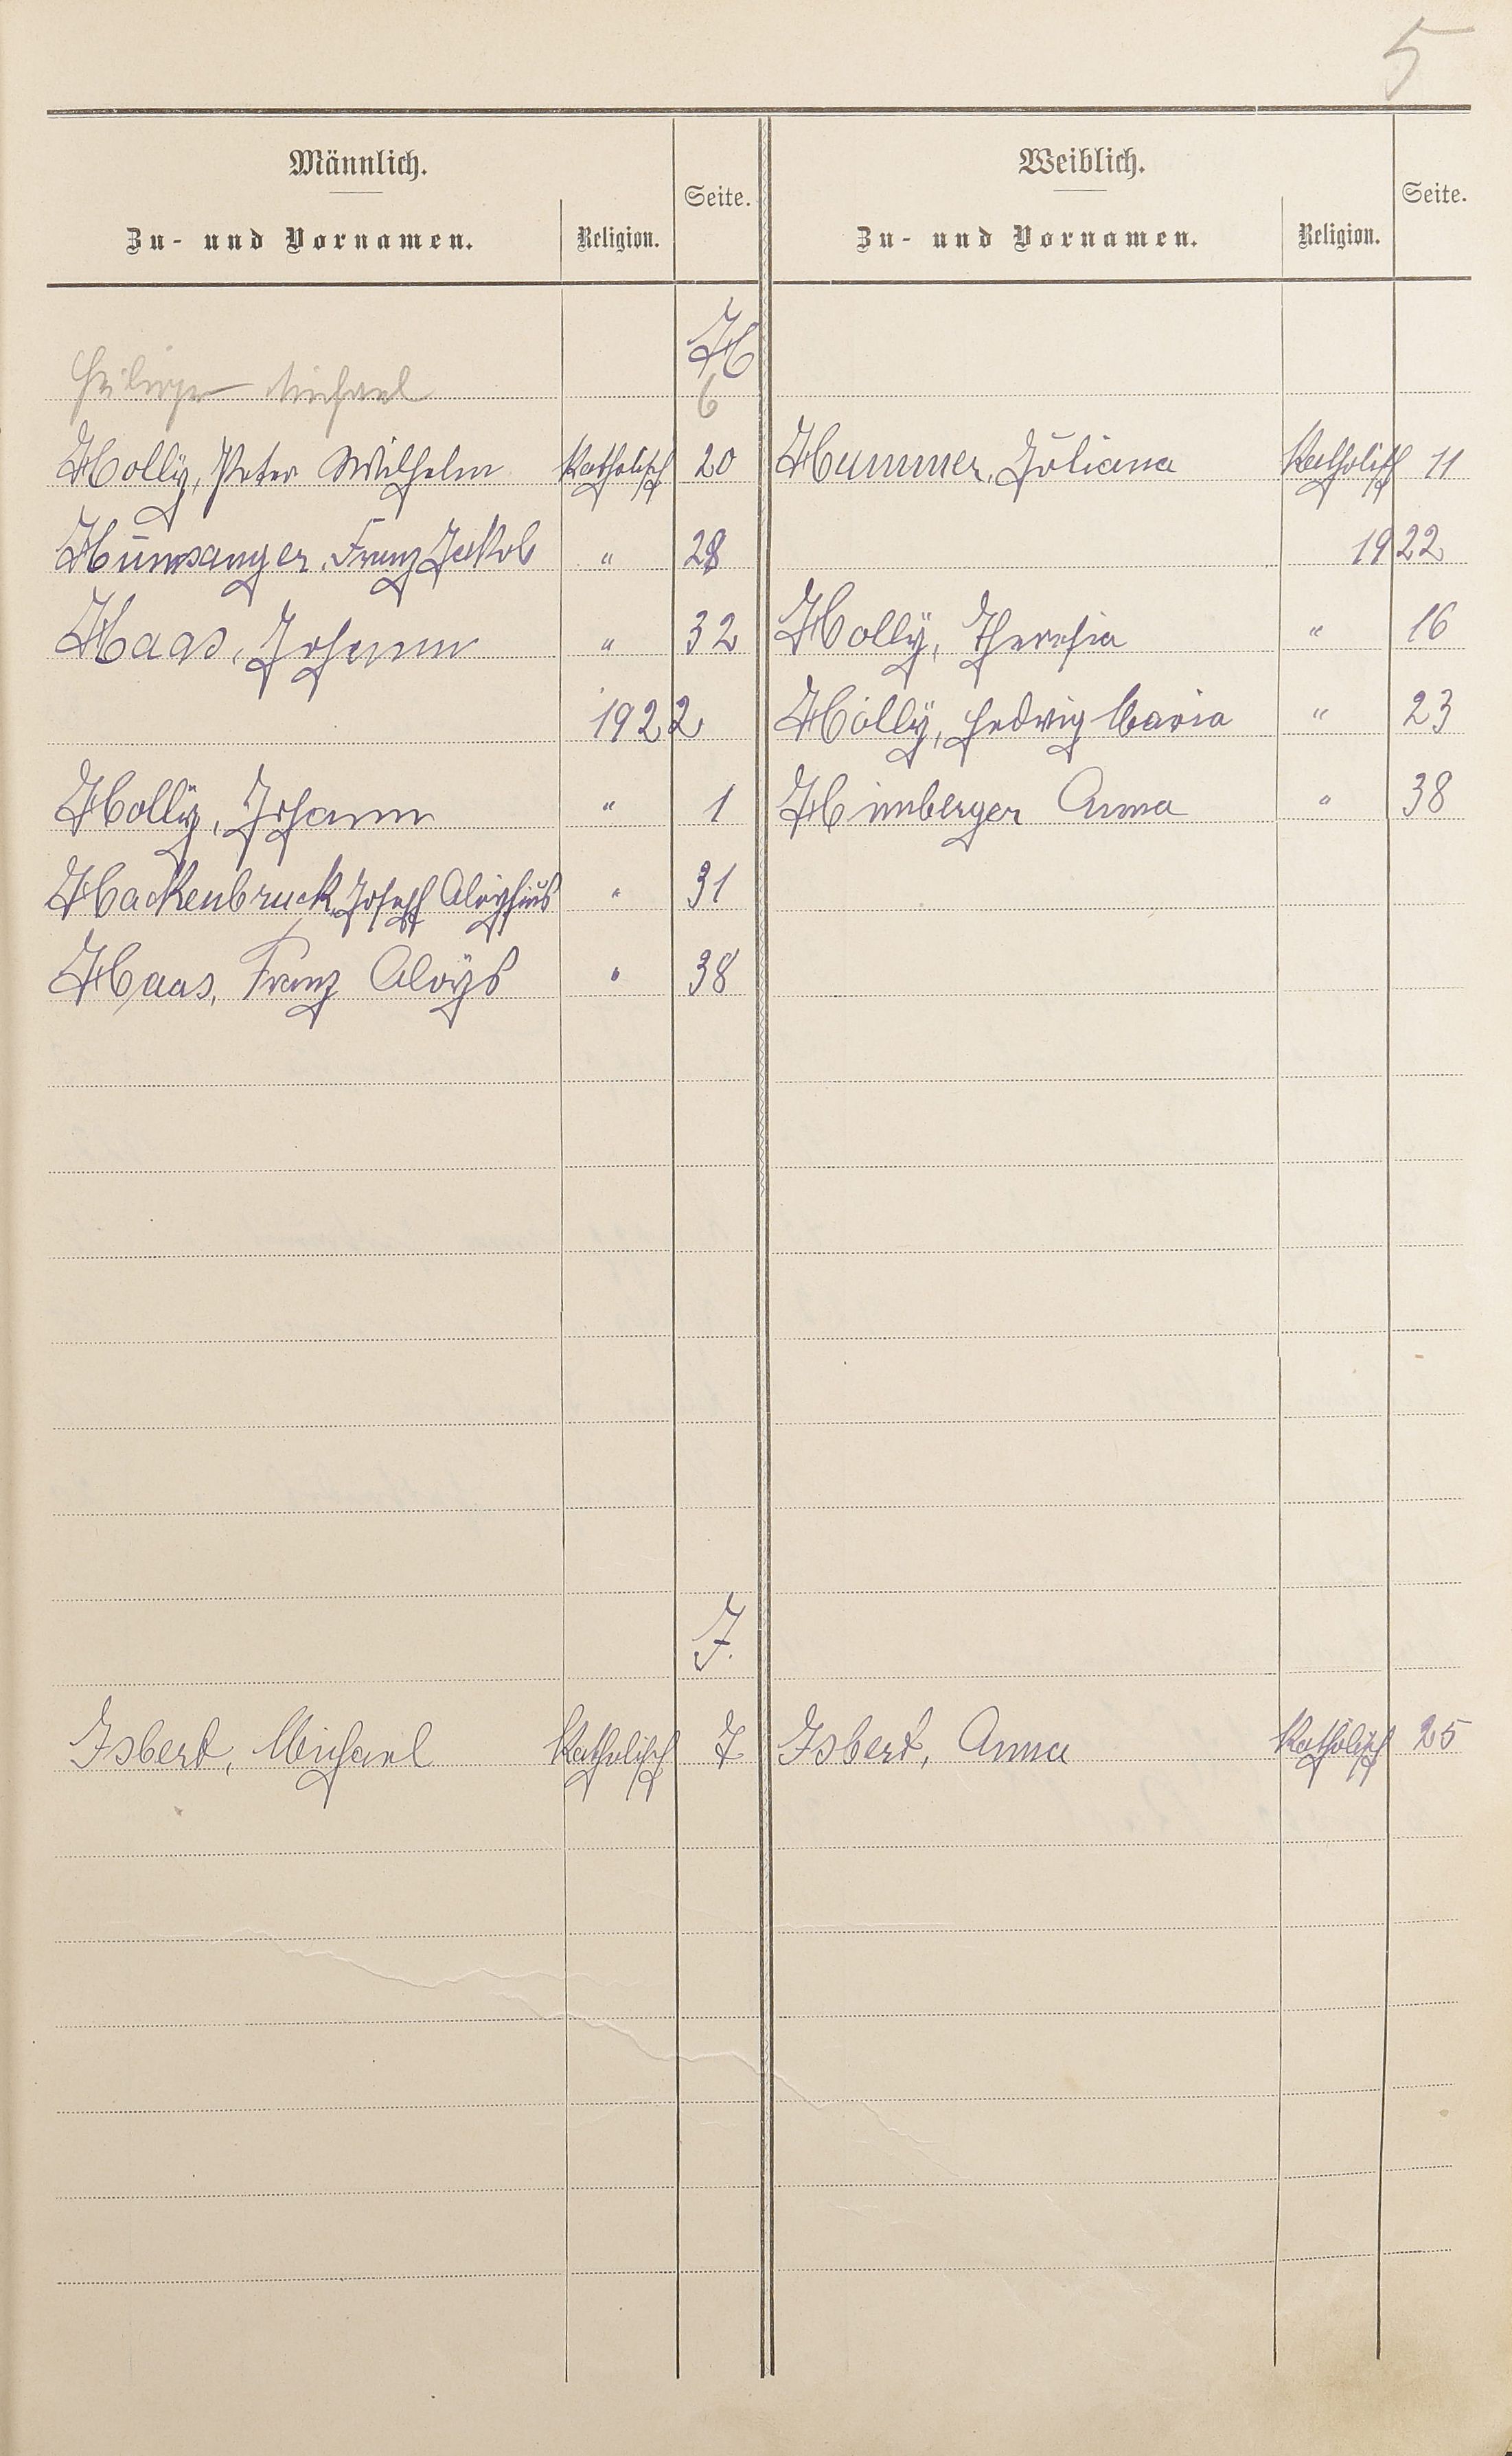 5
Männlich. Seite. Weiblich. Seite.
Zu- und Vornamen. Religion. Zu- und Vornamen. Religion.
H
Michael 6
Holly, Peter Wilhelm Katholisch 20 Hummer, Juliana Katholisch 11
Franz Jakob " 28 1922
Haas, Johann " 32 Holly, Theresia " 16
1922 Holly, Hedwig Maria " 23
Holly, Johann " 1 Himberger Anna " 38
Hackenbruck, Joseph Aloysius " 31
Haas, Franz Aloys " 38
J.
Isbert, Michael Katholisch 7 Isbert, Anna Katholisch 25